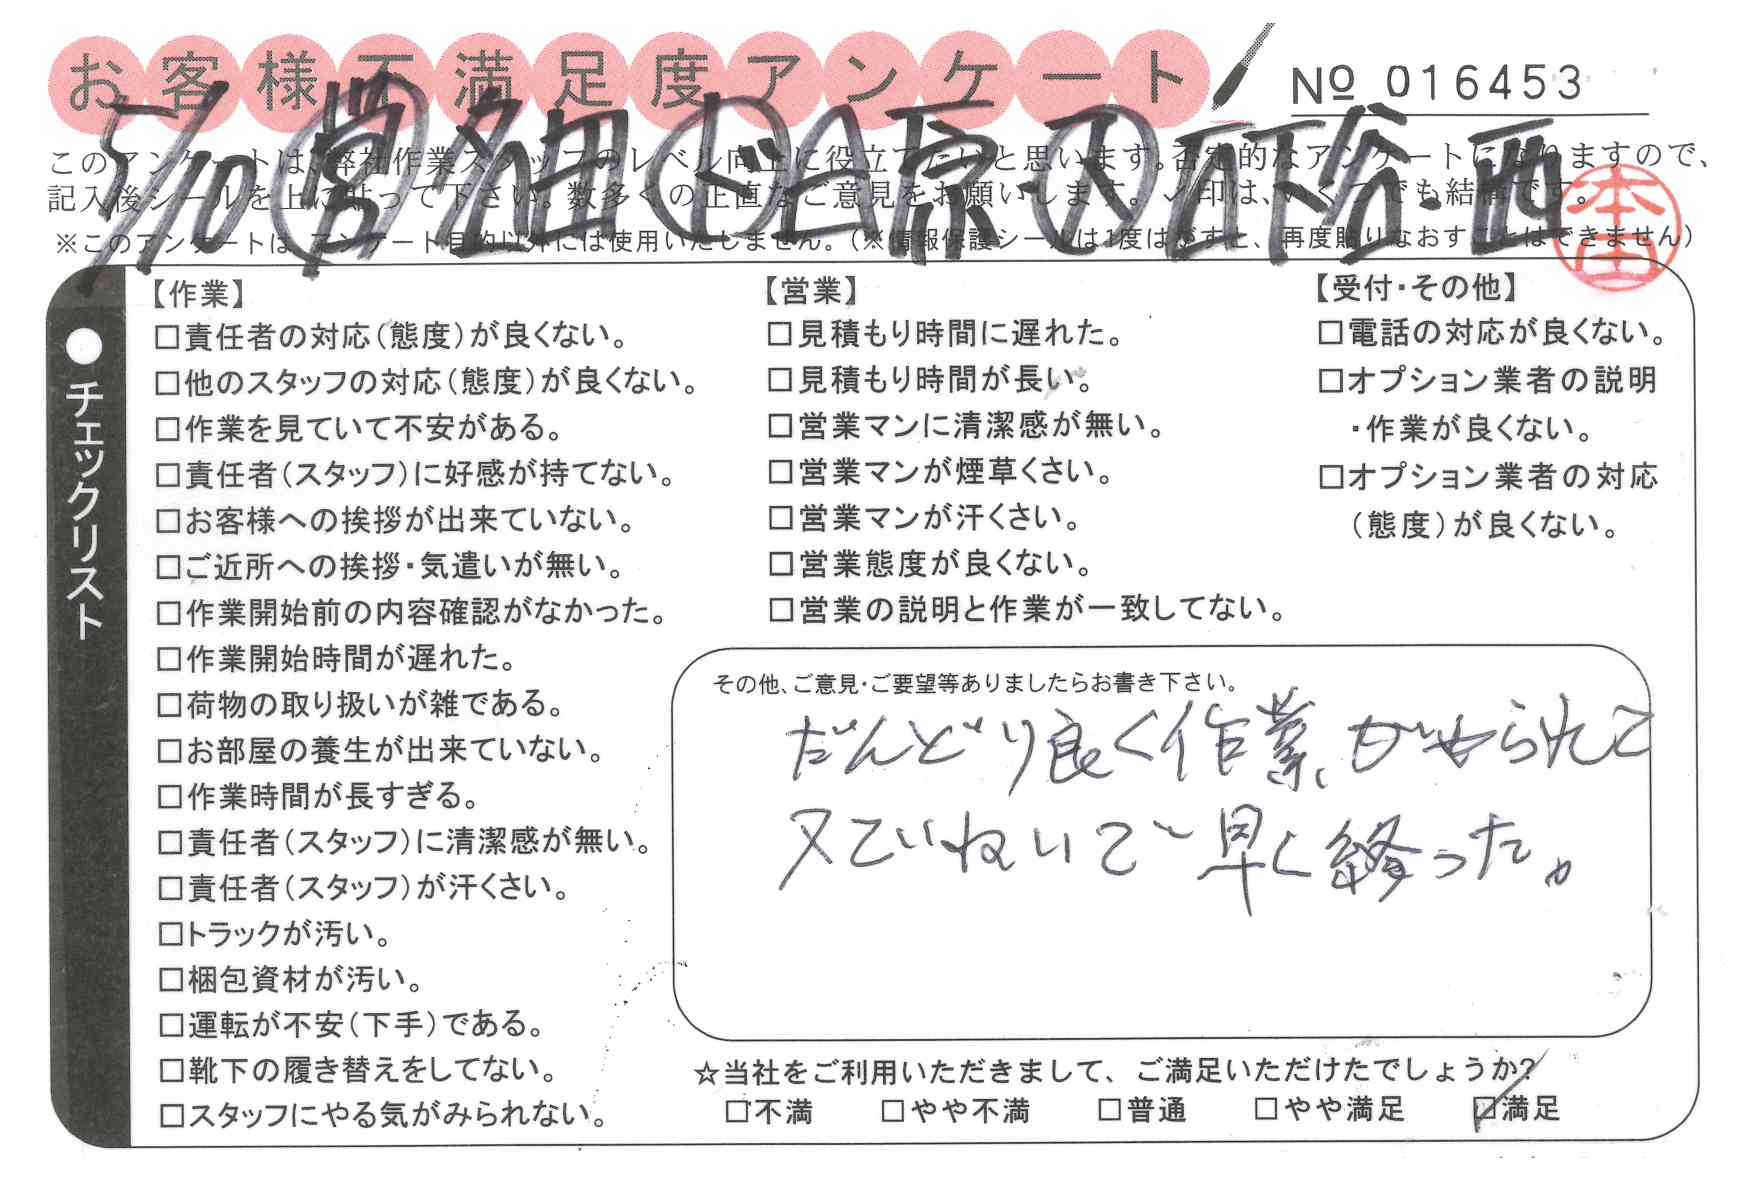 お客様不満足度アンケート
Nº 016453
5/10
このアンケートは、弊社作業スタッフのレベル向上に役立てたいと思います。否定的なアンケートになりますので、
記入後シールを上に貼って下さい。数多くの正直なご意見をお願いします。✓印は、いくつでも結構です。
※このアンケートは、アンケート目的以外には使用いたしません。(※情報保護シールは1度はがすと、再度貼りなおすことはできません)
●チェックリスト
【作業】
□責任者の対応(態度)が良くない。
□他のスタッフの対応(態度)が良くない。
□作業を見ていて不安がある。
□責任者(スタッフ)に好感が持てない。
□お客様への挨拶が出来ていない。
□ご近所への挨拶・気遣いが無い。
□作業開始前の内容確認がなかった。
□作業開始時間が遅れた。
□荷物の取り扱いが雑である。
□お部屋の養生が出来ていない。
□作業時間が長すぎる。
□責任者(スタッフ)に清潔感が無い。
□責任者(スタッフ)が汗くさい。
□トラックが汚い。
□梱包資材が汚い。
□運転が不安(下手)である。
□靴下の履き替えをしてない。
□スタッフにやる気がみられない。
【営業】
□見積もり時間に遅れた。
□見積もり時間が長い。
□営業マンに清潔感が無い。
□営業マンが煙草くさい。
□営業マンが汗くさい。
□営業態度が良くない。
□営業の説明と作業が一致してない。
【受付・その他】
□電話の対応が良くない。
□オプション業者の説明
・作業が良くない。
□オプション業者の対応
(態度)が良くない。
その他、ご意見・ご要望等ありましたらお書き下さい。
だんどり良く作業、がやられて
又ていねいで早く終った。
☆当社をご利用いただきまして、ご満足いただけたでしょうか?
□不満 □やや不満 □普通 □やや満足 ☑満足